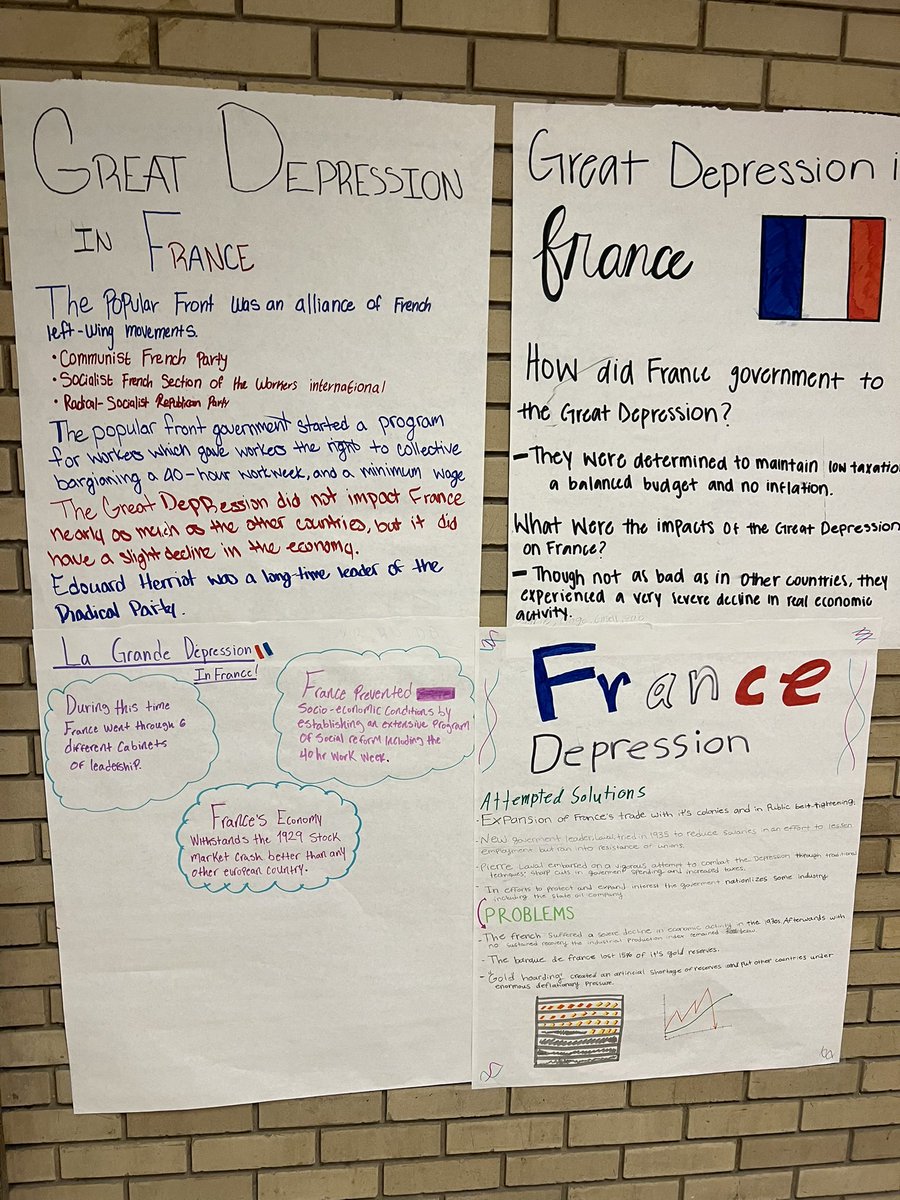 GREAT DEPRESSION
IN FRANCE
The Popular Front was an alliance of French
left-wing movements.
• Communist French Party
• Socialist French Section of the Workers international
• Radical-Socialist Republican Party
The popular front government started a program
for workers which gave workers the right to collective
bargioning a 40-hour workweek, and a minimum wage
The Great Deppression did not impact France
nearly as much as the other countries, but it did
have a slight decline in the economy.
Edouard Herriot was a long-time leader of the
Diradical Party.
Great Depression i
france
How did France government to
the Great Depression?
- They were determined to maintain low taxation
a balanced budget and no inflation.
What were the impacts of the Great Depression
on France?
- Though not as bad as in other countries, they
experienced a very severe decline in real economic
activity.
La Grande Dépression
In France!
During this time
France went through 6
different cabinets
of leadership.
France Prevented
Socio-economic conditions by
establishing an extensive program
of social reform including the
40 hr work week.
France's Economy
withstands the 1929 stock
market crash better than any
other european country.
France
Depression
Attempted Solutions
- Expansion of France's trade with it's colonies and in Public belt-tightening.
- New goverment leader, Laval, tried in 1935 to reduce salaries in an effort to lessen
employment but ran into resistance of unions.
- Pierre Laval embarked on a vigorous attempt to combat the Depression through traditional
techniques: sharp cuts in goverment spending and increased taxes.
- In efforts to protect and expand interest the goverment nationlizes some industry
including the state oil company.
PROBLEMS
- The french suffered a severe decline in economic activity in the 1930s. Afterwards with
no sustained recovery the industrial production index remained below
- The banque de france lost 15% of it's gold reserves.
- "Gold hoarding" created an artificial shortage of reserves and put other countries under
enormous deflationary pressure.